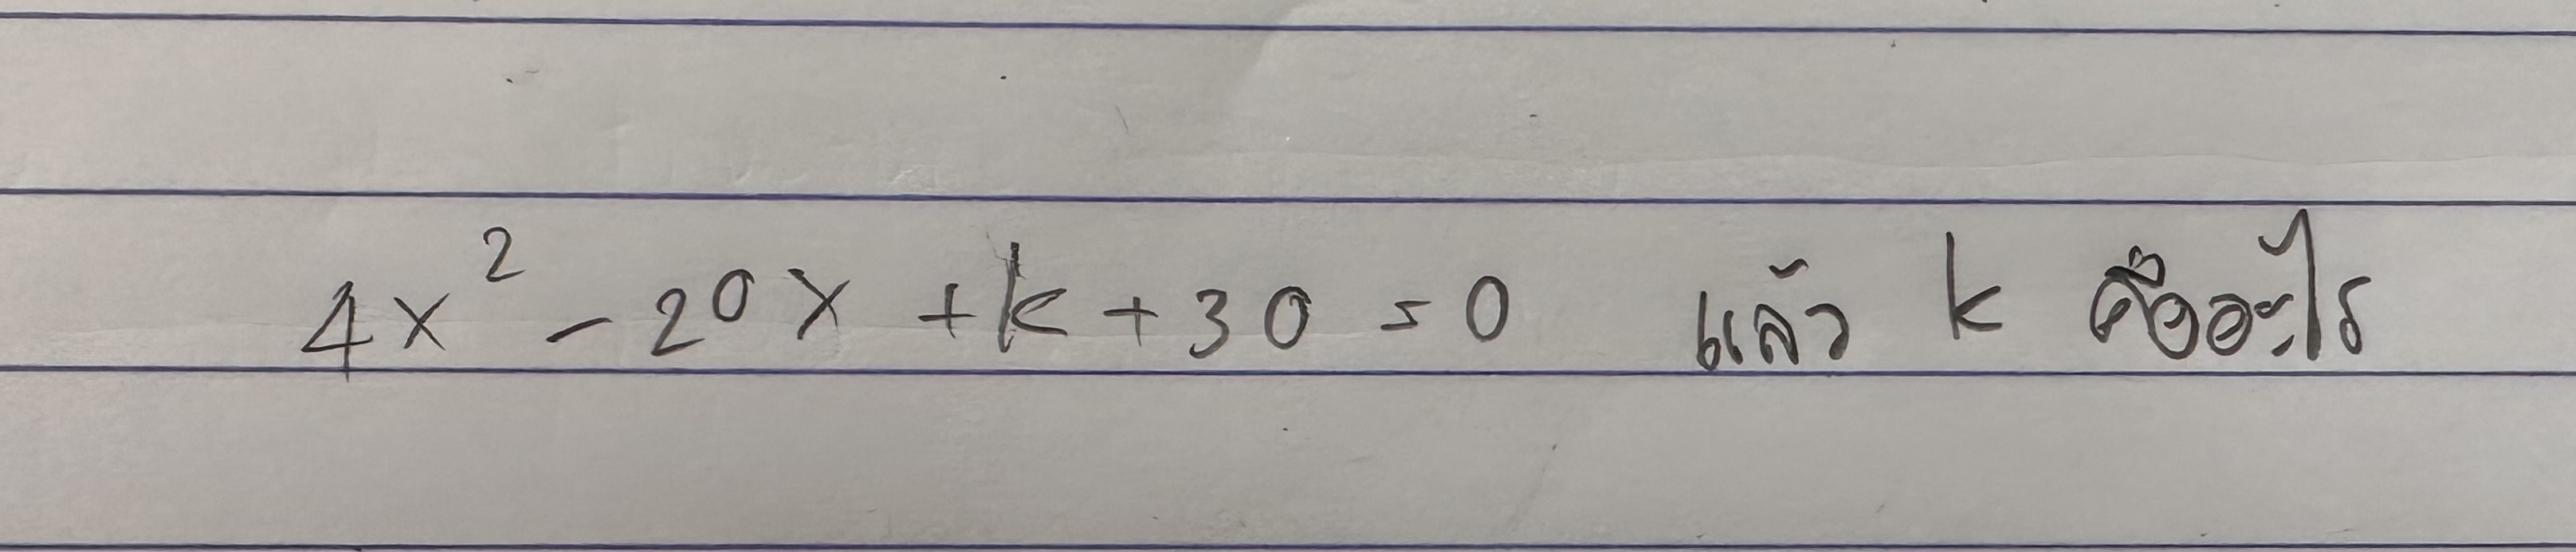 4x² - 20x + k + 30 = 0 แล้ว k คืออะไร